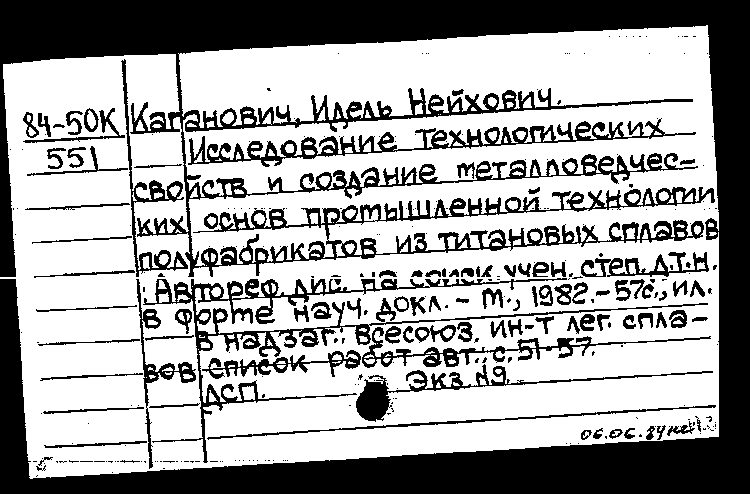 84-50К Каганович, Идель Нейхович.
551 Исследование технологических
свойств и создание металловедчес-
ких основ промышленной технологии
полуфабрикатов из титановых сплавов
: Автореф. дис. на соиск. учен. степ. д.т.н.
в форме науч. докл. - М., 1982. - 57с., ил.
В надзаг.: Всесоюз. ин-т лег. спла-
вов Список работ авт.: с. 51-57.
ДСП. Экз №9.
06.06.84